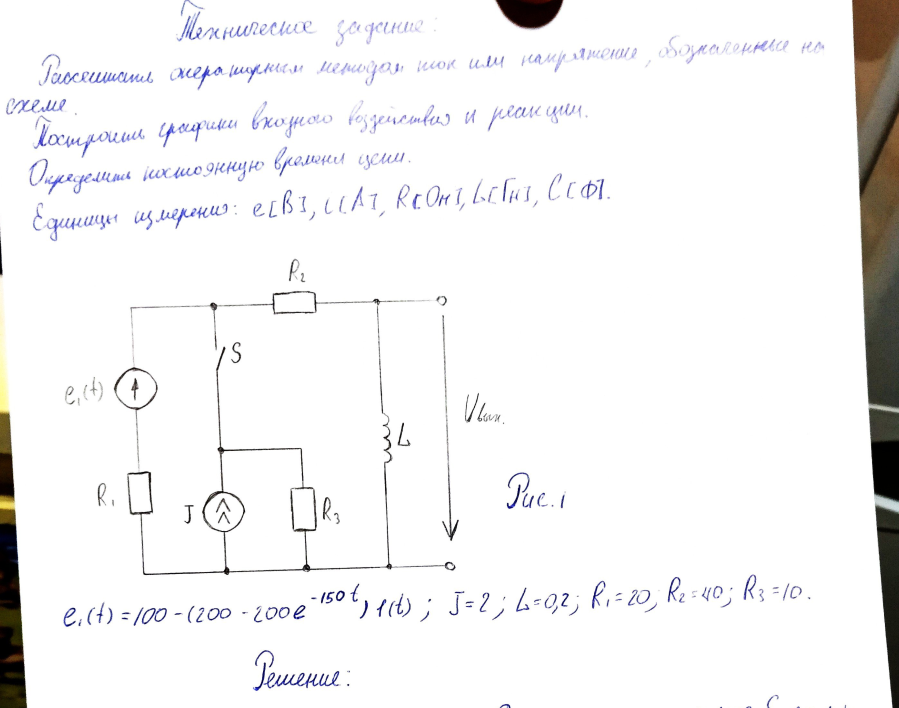 Техническое задание:
Рассчитать операторным методом ток или напряжение, обозначенные на
схеме.
Построить графики входного воздействия и реакции.
Определить постоянную времени цепи.
Единицы измерения: e[В], i[А], R[Ом], L[Гн], C[Ф].
R₂
S
e₁(t)
L
Uвых.
R₁
J
R₃
Рис. 1
e₁(t) = 100 - (200 - 200e^-150t) 1(t); J=2; L=0,2; R₁=20; R₂=40; R₃=10.
Решение: